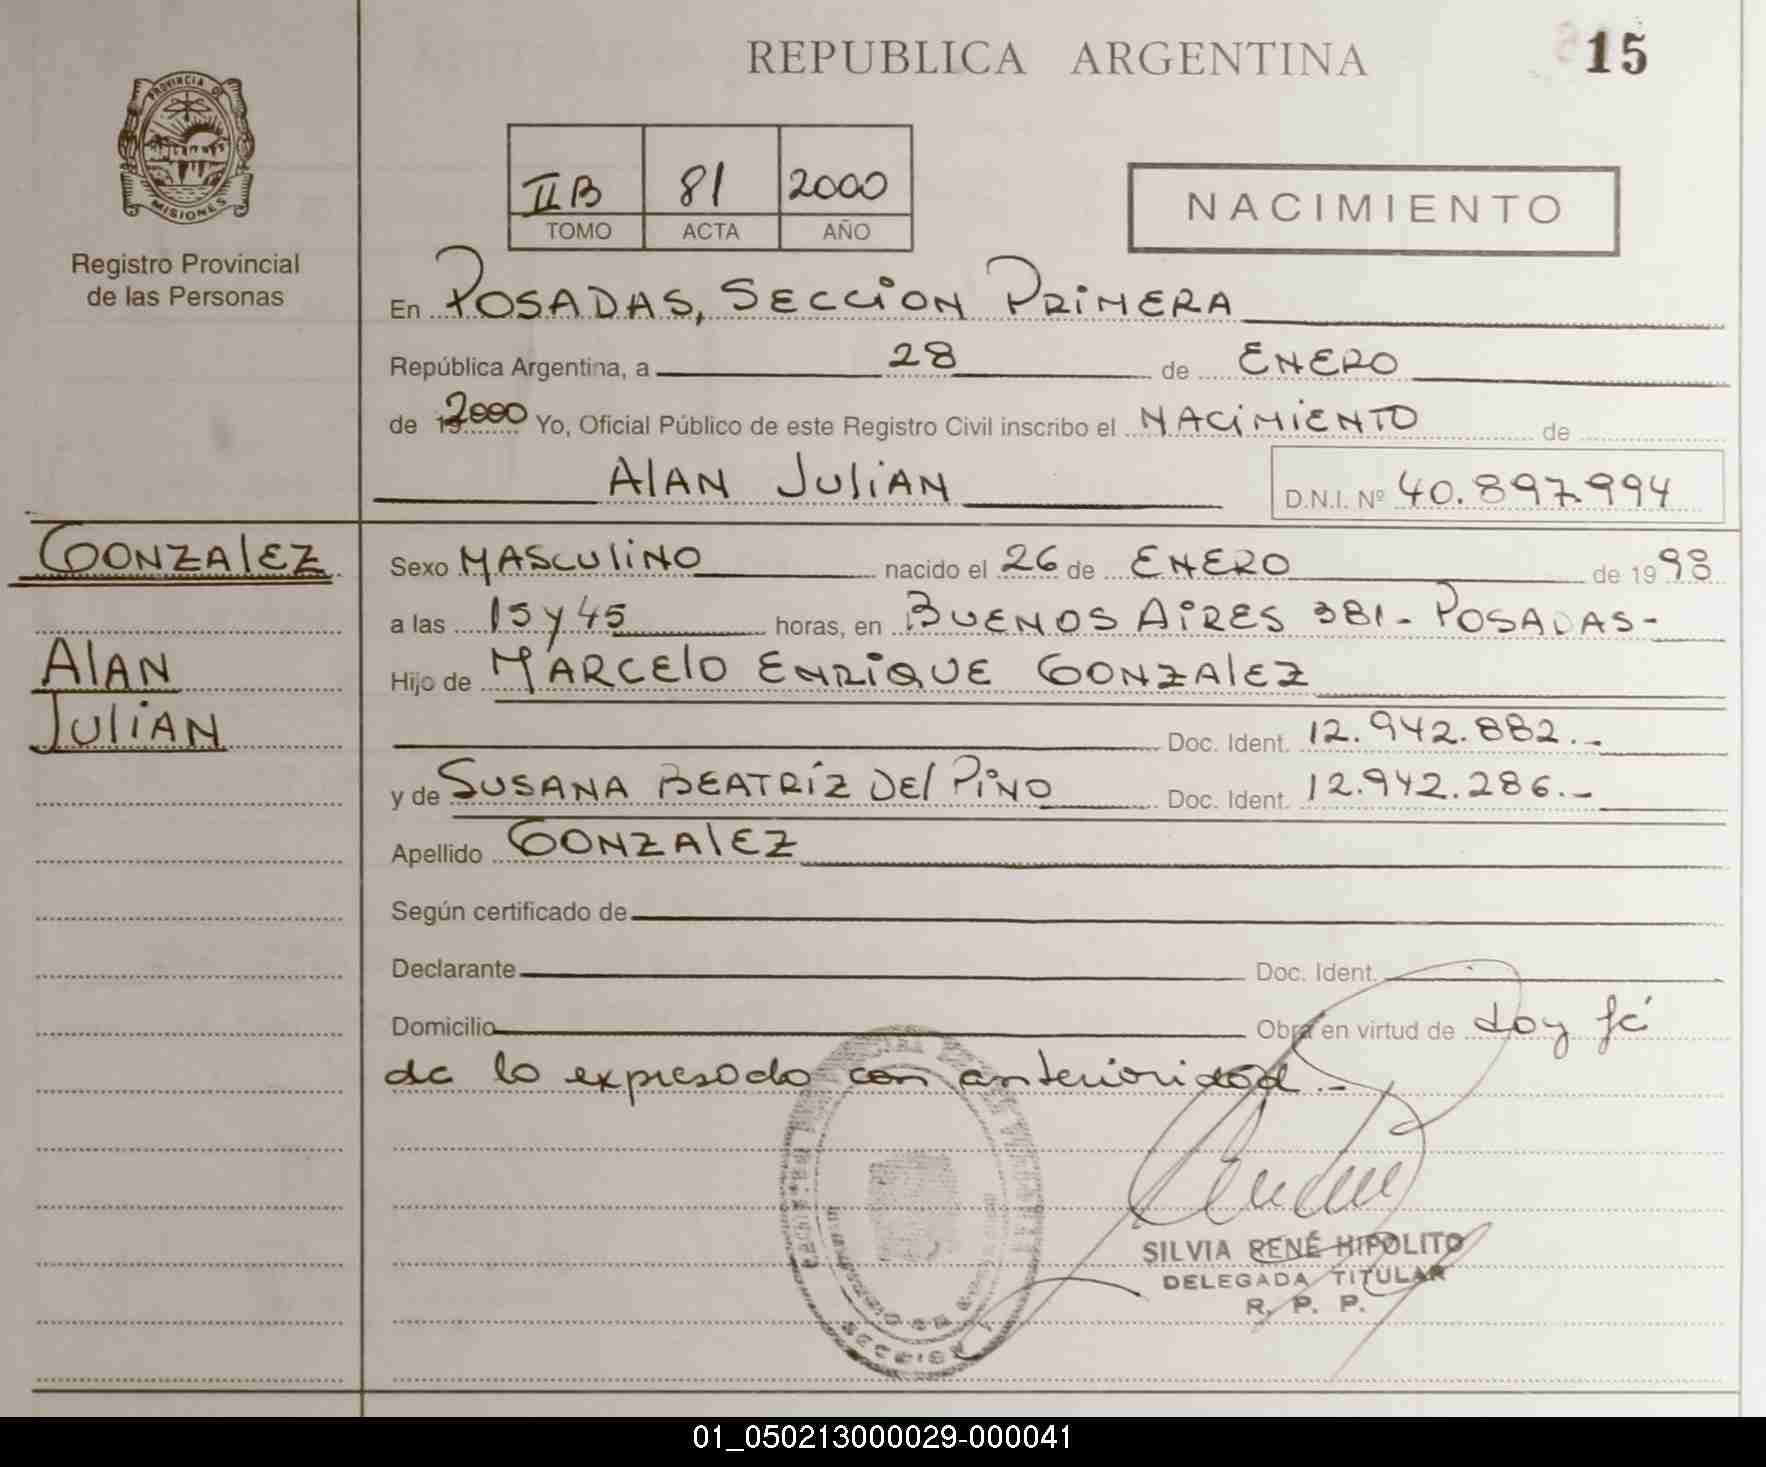 REPUBLICA ARGENTINA
15
PROVINCIA DE
MISIONES
Registro Provincial
de las Personas
II B 81 2000
TOMO ACTA AÑO
NACIMIENTO
En POSADAS, SECCION PRIMERA
República Argentina, a 28 de ENERO
de 2000 Yo, Oficial Público de este Registro Civil inscribo el NACIMIENTO de
ALAN JULIAN D.N.I. Nº 40.897.994
GONZALEZ
ALAN
JULIAN
Sexo MASCULINO nacido el 26 de ENERO de 1998
a las 15 y 45 horas, en BUENOS AIRES 381 - POSADAS -
Hijo de MARCELO ENRIQUE GONZALEZ
Doc. Ident. 12.942.882.-
y de SUSANA BEATRÍZ DEL PINO Doc. Ident. 12.942.286.-
Apellido GONZALEZ
Según certificado de
Declarante Doc. Ident.
Domicilio Obra en virtud de doy fé
de lo expresado con anterioridad.-
SILVIA RENÉ HIPOLITO
DELEGADA TITULAR
R. P. P.
SECCION
01_050213000029-000041